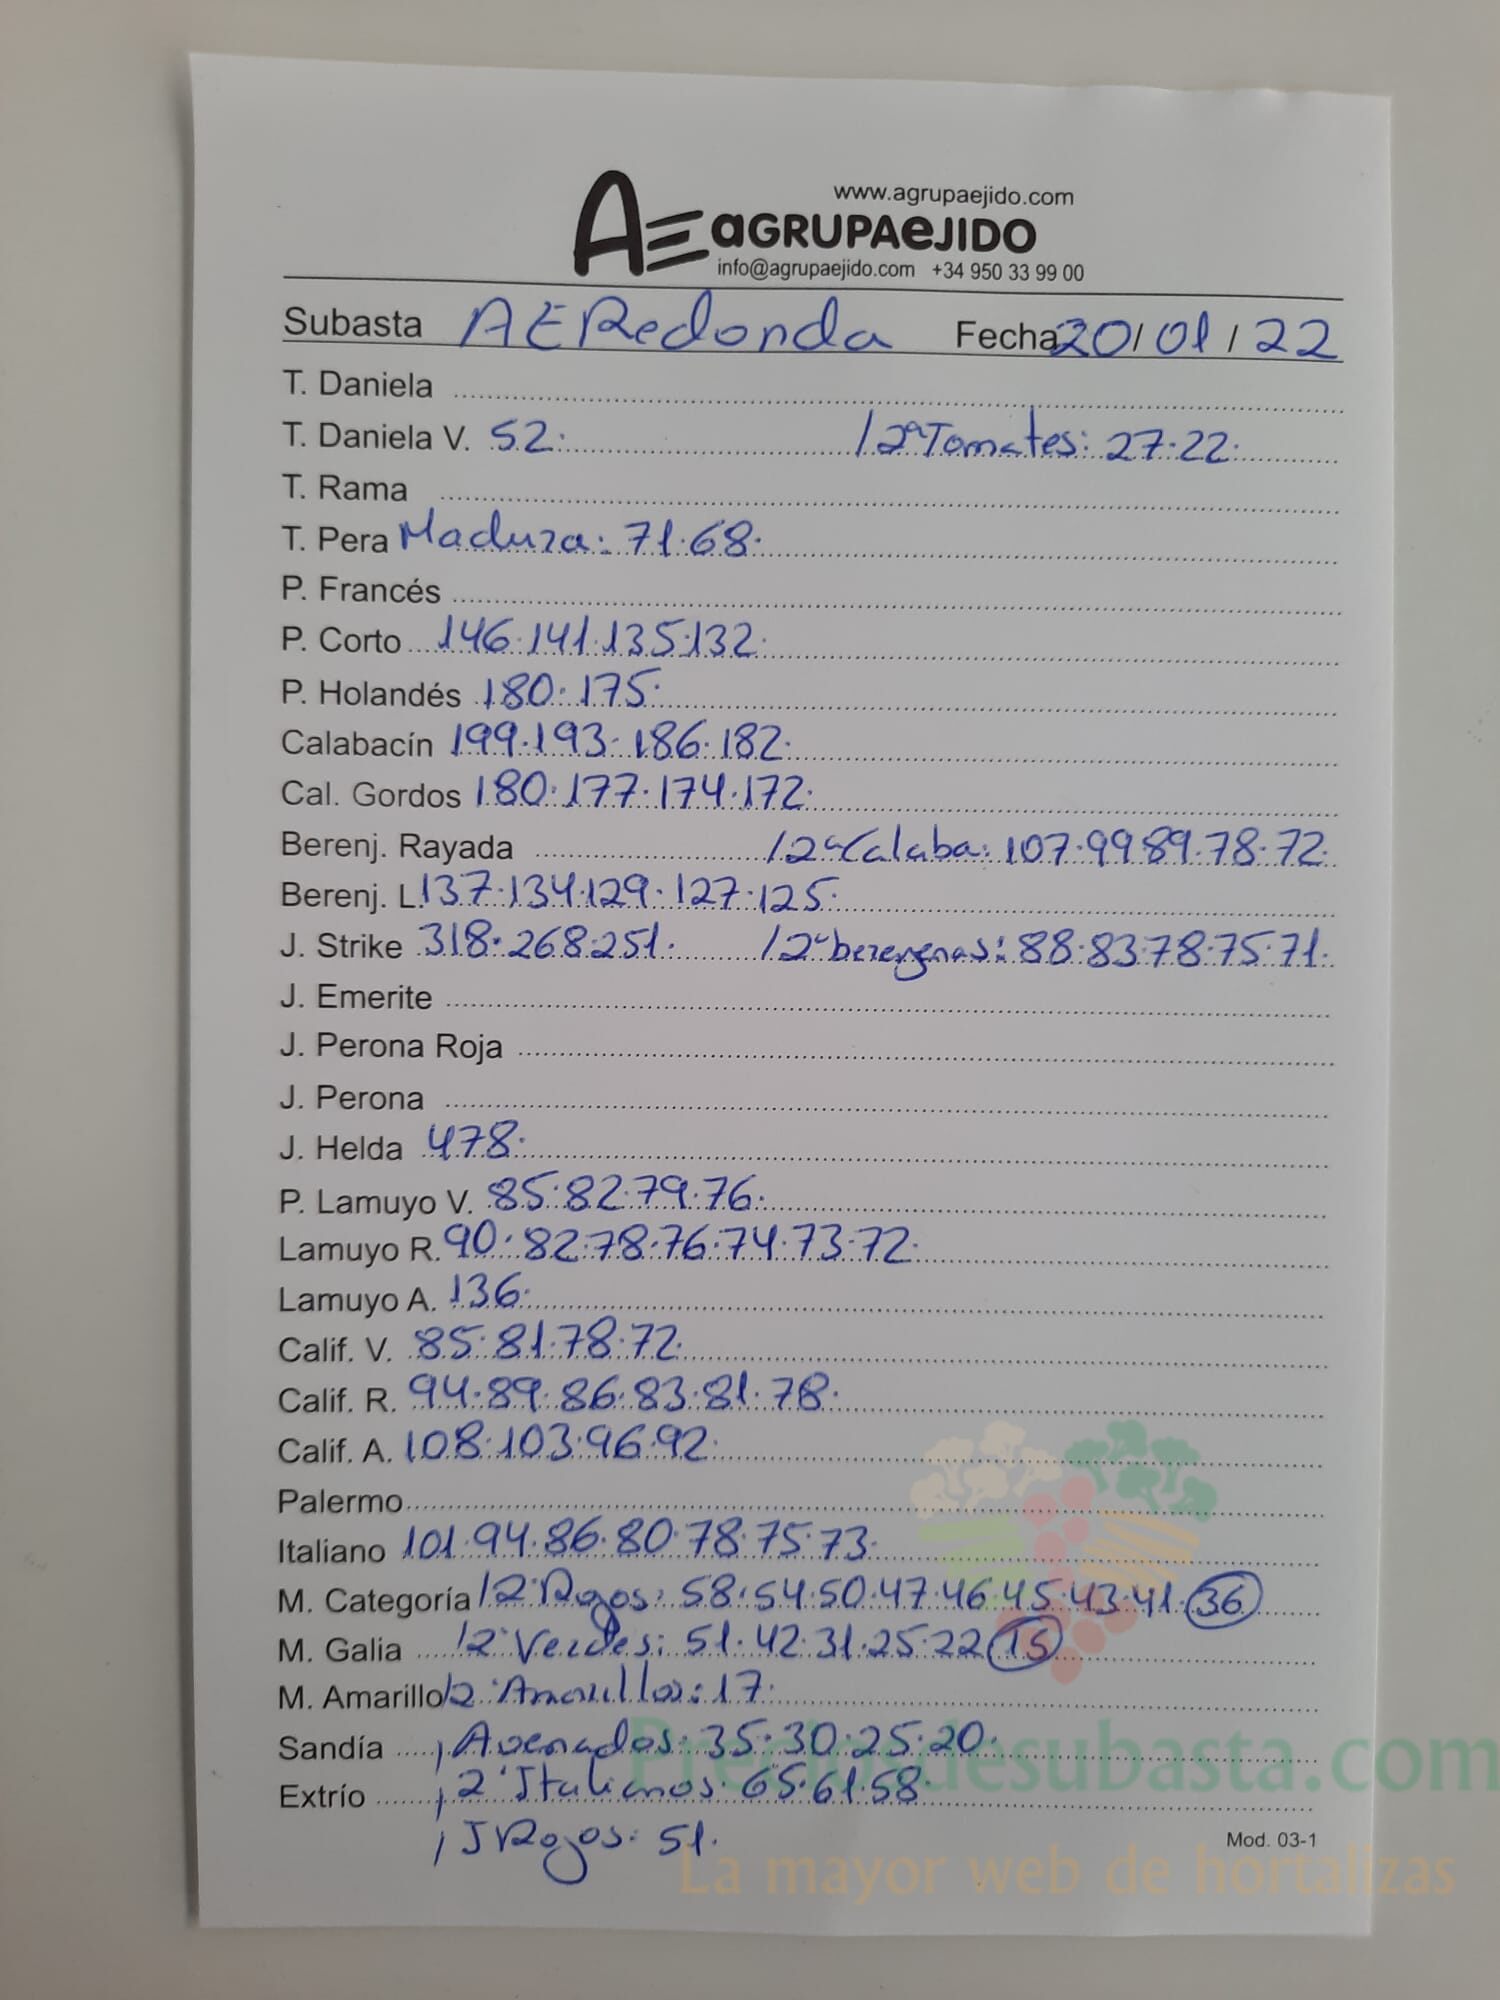 www.agrupaejido.com
AE aGRUPAeJIDO
info@agrupaejido.com +34 950 33 99 00
Subasta AERedonda Fecha 20/01/22
T. Daniela
T. Daniela V. 52. /2ª Tomates: 27.22.
T. Rama
T. Pera Madura: 71.68.
P. Francés
P. Corto 146.141.135.132.
P. Holandés 180.175.
Calabacín 199.193.186.182.
Cal. Gordos 180.177.174.172.
Berenj. Rayada /2ª Calaba: 107.99.89.78.72.
Berenj. L. 137.134.129.127.125.
J. Strike 318.268.251. /2ª berengenas: 88.83.78.75.71.
J. Emerite
J. Perona Roja
J. Perona
J. Helda 478.
P. Lamuyo V. 85.82.79.76.
Lamuyo R. 90.82.78.76.74.73.72.
Lamuyo A. 136.
Calif. V. 85.81.78.72.
Calif. R. 94.89.86.83.81.78.
Calif. A. 108.103.96.92.
Palermo
Italiano 101.94.86.80.78.75.73.
M. Categoría /2ª Rojos: 58.54.50.47.46.45.43.41.36
M. Galia /2ª Verdes: 51.42.31.25.22.15
M. Amarillo /2ª Amarillos: 17.
Sandía / Asenados: 35.30.25.20.
Extrío / 2ª Italianos: 65.61.58.
/ J Rojos: 51.
Mod. 03-1
Preciosdesubasta.com
La mayor web de hortalizas